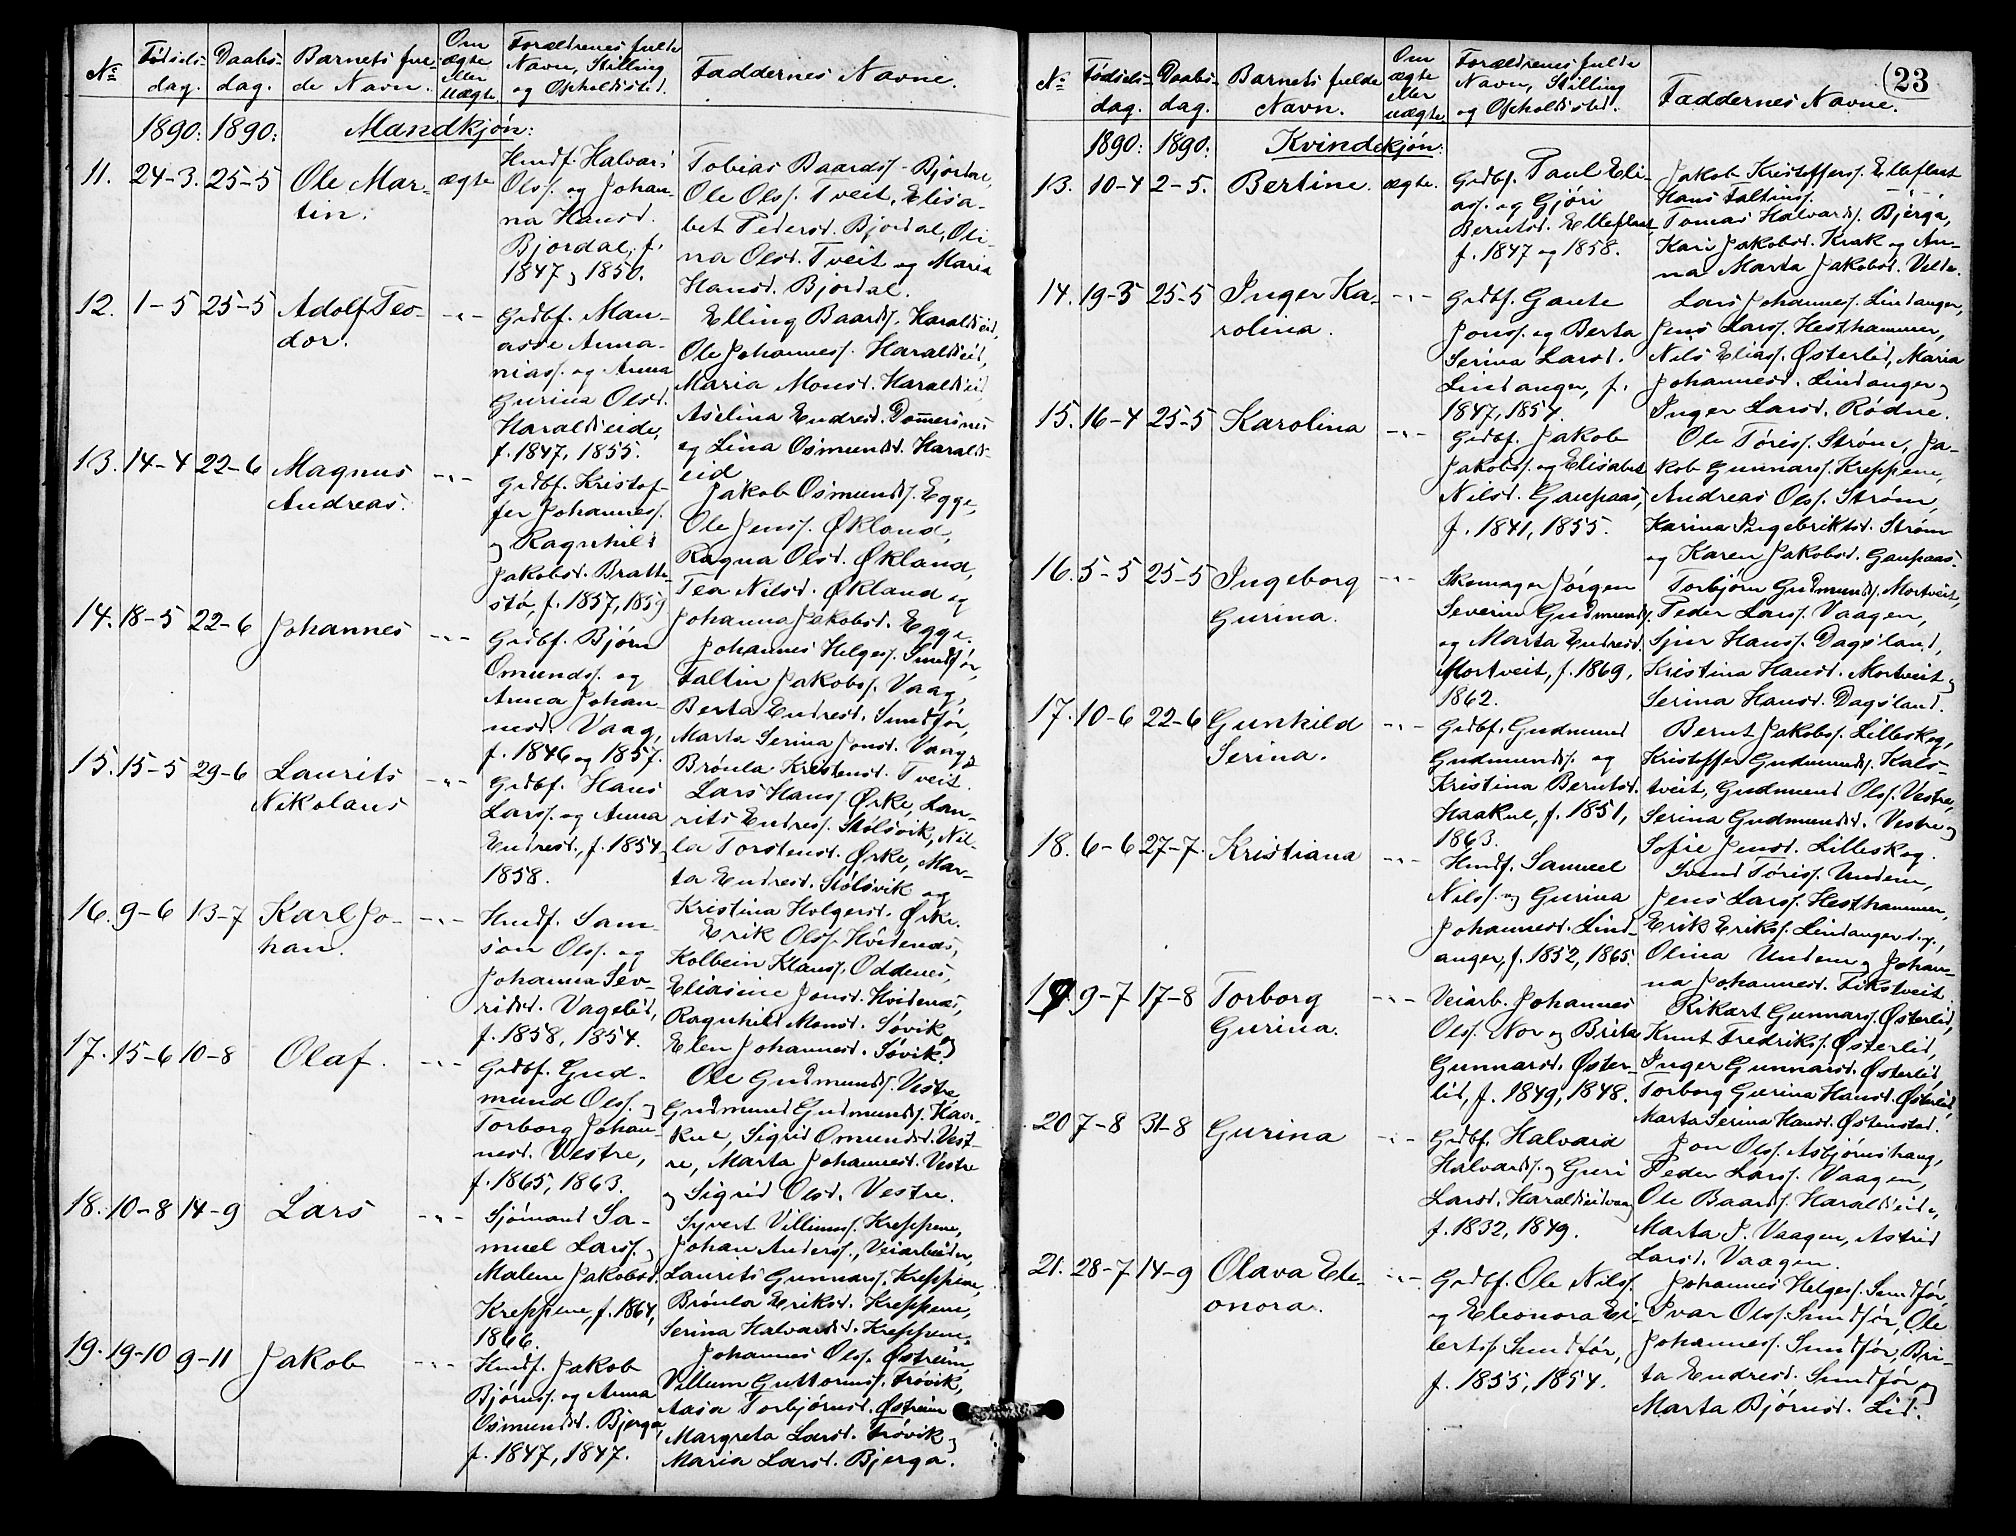 No
Fødsels-
dag.
Daabs-
dag.
Barnets ful-
de Navn.
Om
ægte
eller
uægte
Forældrenes fulde
Navn, Stilling
og Opholdssted.
Faddernes Navne.
1890: 1890: Mandkjøn:
11. 24-3. 25-5 Ole Mar-
tin.
ægte
Hmdf. Halvar
Olss. og Johan-
na Hansd.
Bjordal, f.
1847, 1850.
Tobias Baardss. Bjordal,
Ole Olss. Tveit, Elisa-
bet Pedersd. Bjordal, Oli-
na Olsd. Tveit og Maria
Hansd. Bjordal.
12. 1-5 25-5 Adolf Teo-
dor.
-"-
Grdbf. Man-
asse Anna-
niass. og Anna
Gurina Olsd.
Haraldseide,
f. 1847, 1855.
Elling Baards. Haraldseid,
Ole Johanness. Haraldseid,
Maria Monsd. Haraldseid
Aselina Endresd. Dommersnes
og Lina Osmundsd. Haralds-
eid
13. 14-4 22-6 Magnus
Andreas.
-"-
Grdbf. Kristof-
fer Johanness.
og Ragnhild
Jakobsd. Bratte-
stø, f. 1857, 1859
Jakob Osmunds. Egge,
Ole Jenss. Økland,
Ragna Olsd. Økland,
Tea Nilsd. Økland og
Johanna Jakobsd. Egge.
14. 18-5 22-6 Johannes
-"-
Grdbf. Bjørn
Omunds. og
Anna Johan-
nesd. Vaag,
f. 1846 og 1857.
Johannes Helgess. Sundfør,
Faltin Jakobss. Vaag,
Berta Endresd. Sundfør,
Marta Serina Jonsd. Vaag og
Brønla Kristensd. Tveit.
15. 15-5 29-6 Laurits
Nikolaus
-"-
Grdbf. Hans
Larss. og Anna
Endresd., f. 1854,
1858.
Lars Hanss. Ørke, Lau-
rits Endress. Stølsvik, Nil-
la Torstensd. Ørke, Mar-
ta Endresd. Stølsvik og
Kristina Holgersd. Ørke.
16. 9-6 13-7 Karl Jo-
han.
-"-
Hmdf. Sam-
son Olss. og
Johanna Sev-
ridsd. Vagslid,
f. 1858, 1854.
Erik Olss. Hvidenæs,
Kolbein Klauss. Oddenes,
Eliasine Jonsd. Hvidenæs,
Ragnhild Monsd. Søvik
Elen Johannesd. Søvik.
17. 15-6 10-8 Olaf.
-"-
Grdbf. Gud-
mund Olss. og
Torborg Johan-
nesd. Vestre,
f. 1865, 1863.
Ole Gudmunds. Vestre
Gudmund Gudmunds. Haa-
kul, Sigrid Omundsd. Vest-
re, Marta Johannesd. Vestre
og Sigrid Olsd. Vestre.
18. 10-8 14-9 Lars
-"-
Sjømand Sa-
muel Larss. og
Malene Jakobsd.
Kreppene, f. 1864,
1866.
Syvert Villiums. Kreppene,
Johan Anderss., Veiarbeider,
Laurits Gunnarss. Kreppene,
Brønla Eriksd. Kreppene,
Serina Halvardsd. Kreppene.
19. 19-10 9-11 Jakob
-"-
Hmdf. Jakob
Bjørnss. og Anna
Osmundsd. Bjerga,
f. 1847, 1847.
Johannes Olss. Østreim,
Villum Guttormss. Frøvik,
Aasa Torbjørnsd. Østreim
Margreta Larsd. Frøvik og
Maria Larsd. Bjerga.
23
No
Fødsels-
dag.
Daabs-
dag.
Barnets fulde
Navn.
Om
ægte
eller
uægte
Forældrenes fulde
Navn, Stilling
og Opholdssted.
Faddernes Navne.
1890: 1890: Kvindekjøn:
13. 10-4 2-5. Bertine.
ægte.
Grdbf. Paul Eli-
ass. og Gjøri
Berntsd. Elleflaat
f. 1847 og 1858.
Jakob Kristofferss. Elleflaat
Hans Faltins.
Tomas Halvards. Bjerga,
Kari Jakobsd. Krak og An-
na Marta Jakobsd. Velde.
14. 19-3 25-5 Inger Ka-
rolina.
-"-
Grdbf. Gaute
Jonss. og Berta
Serina Larsd.
Lindanger, f.
1847, 1854.
Lars Johanness. Lindanger,
Jens Larss. Hesthammer,
Nils Eliass. Østerlid, Maria
Johannesd. Lindanger og
Inger Larsd. Rødne.
15. 16-4 25-5 Karolina
-"-
Grdbf. Jakob
Jakobs. og Elisabet
Nilsd. Gaupaas,
f. 1841, 1855.
Ole Føriss. Strøm, Ja-
kob Gunnarss. Kreppene,
Andreas Olss. Strøm,
Karina Ingebriktsd. Strøm
og Karen Jakobsd. Gaupaas.
16. 5-5 25-5 Ingeborg
Gurina.
-"-
Skomager Jørgen
Severin Gudmunds.
og Marta Endresd.
Mortveit, f. 1869,
1862.
Torbjørn Gudmunds. Mortveit,
Peder Larss. Vaagen,
Sjur Hanss. Dagsland,
Kristina Hansd. Mortveit og
Serina Hansd. Dagsland.
17. 10-6 22-6 Gunhild
Serina.
-"-
Grdbf. Gudmund
Gudmunds. og
Kristina Berntsd.
Haakul, f. 1851,
1863.
Bernt Jakobs. Lilleskog,
Kristoffer Gudmunds. Kals-
tveit, Gudmund Olss. Vestre,
Serina Gudmundsd. Vestre og
Sofie Jensd. Lilleskog.
18. 6-6 27-7. Kristiana
-"-
Hmdf. Samuel
Nilss. og Gurina
Johannesd. Lind-
anger, f. 1852, 1865.
Svend Føriss. Undem,
Jens Larss. Hesthammer,
Erik Erikss. Lindanger d.y.,
Olina Undem og Johan-
na Johannesd. Fikstveit
19. 9-7 17-8 Torborg
Gurina.
-"-
Veiarb. Johannes
Olss. Nor og Brita
Gunnarsd. Øster-
lid, f. 1849, 1848.
Rikart Gunnarss. Østerlid,
Knut Fredrikss. Østerlid,
Inger Gunnarsd. Østerlid,
Torborg Gurina Hansd. Østerlid,
Marta Serina Hansd. Østenstad.
20 7-8 31-8 Gurina
-"-
Grdbf. Halvard
Halvards. og Guri
Larsd. Haraldseidvaag
f. 1832, 1849.
Jon Olss. Asbjørnshaug,
Peder Larss. Vaagen,
Ole Baards. Haraldseide,
Marta P. Vaagen, Astrid
Larsd. Vaagen.
21. 28-7 14-9 Olava Ele-
onora.
-"-
Grdbf. Ole Nilss.
og Eleonora Ei-
lertsd. Sundfør,
f. 1855, 1854.
Johannes Helgess. Sundfør,
Ivar Olss. Sundfør, Ole
Johanness. Sundfør, Bri-
ta Endresd. Sundfør og
Marta Bjørnsd. Lid.